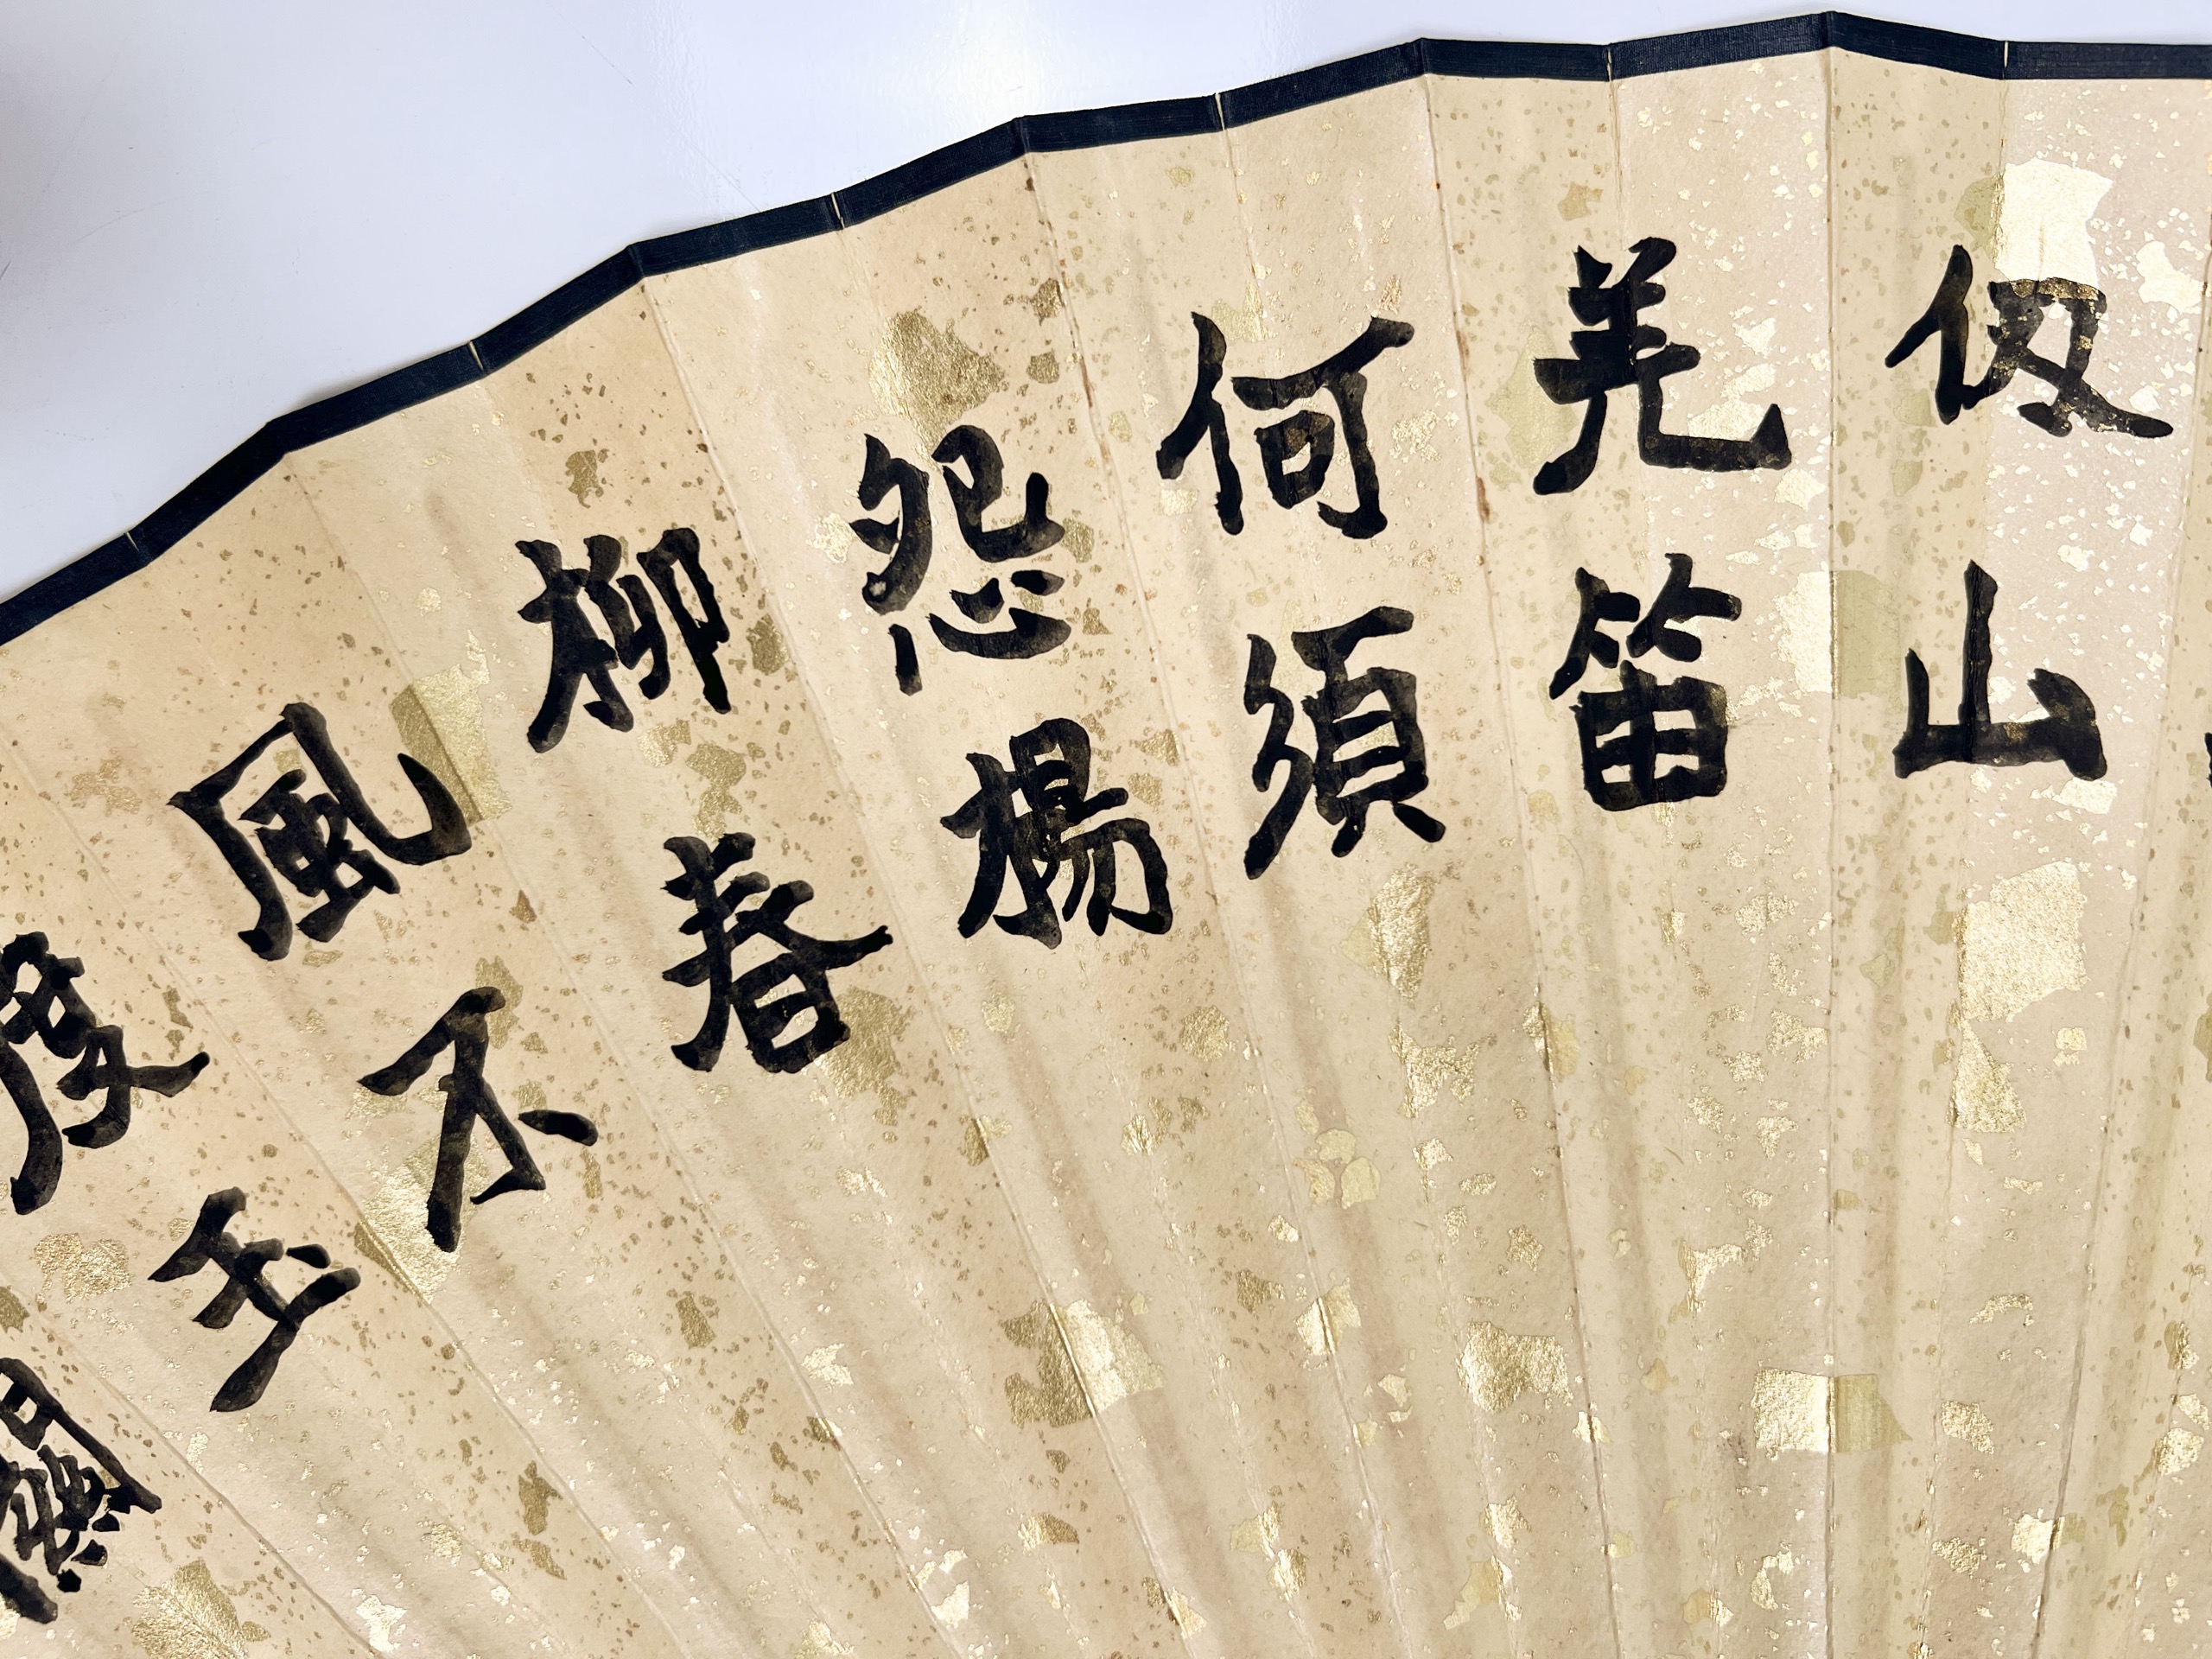 仞山
羌笛
何須
怨楊
柳春
風不
度玉
關